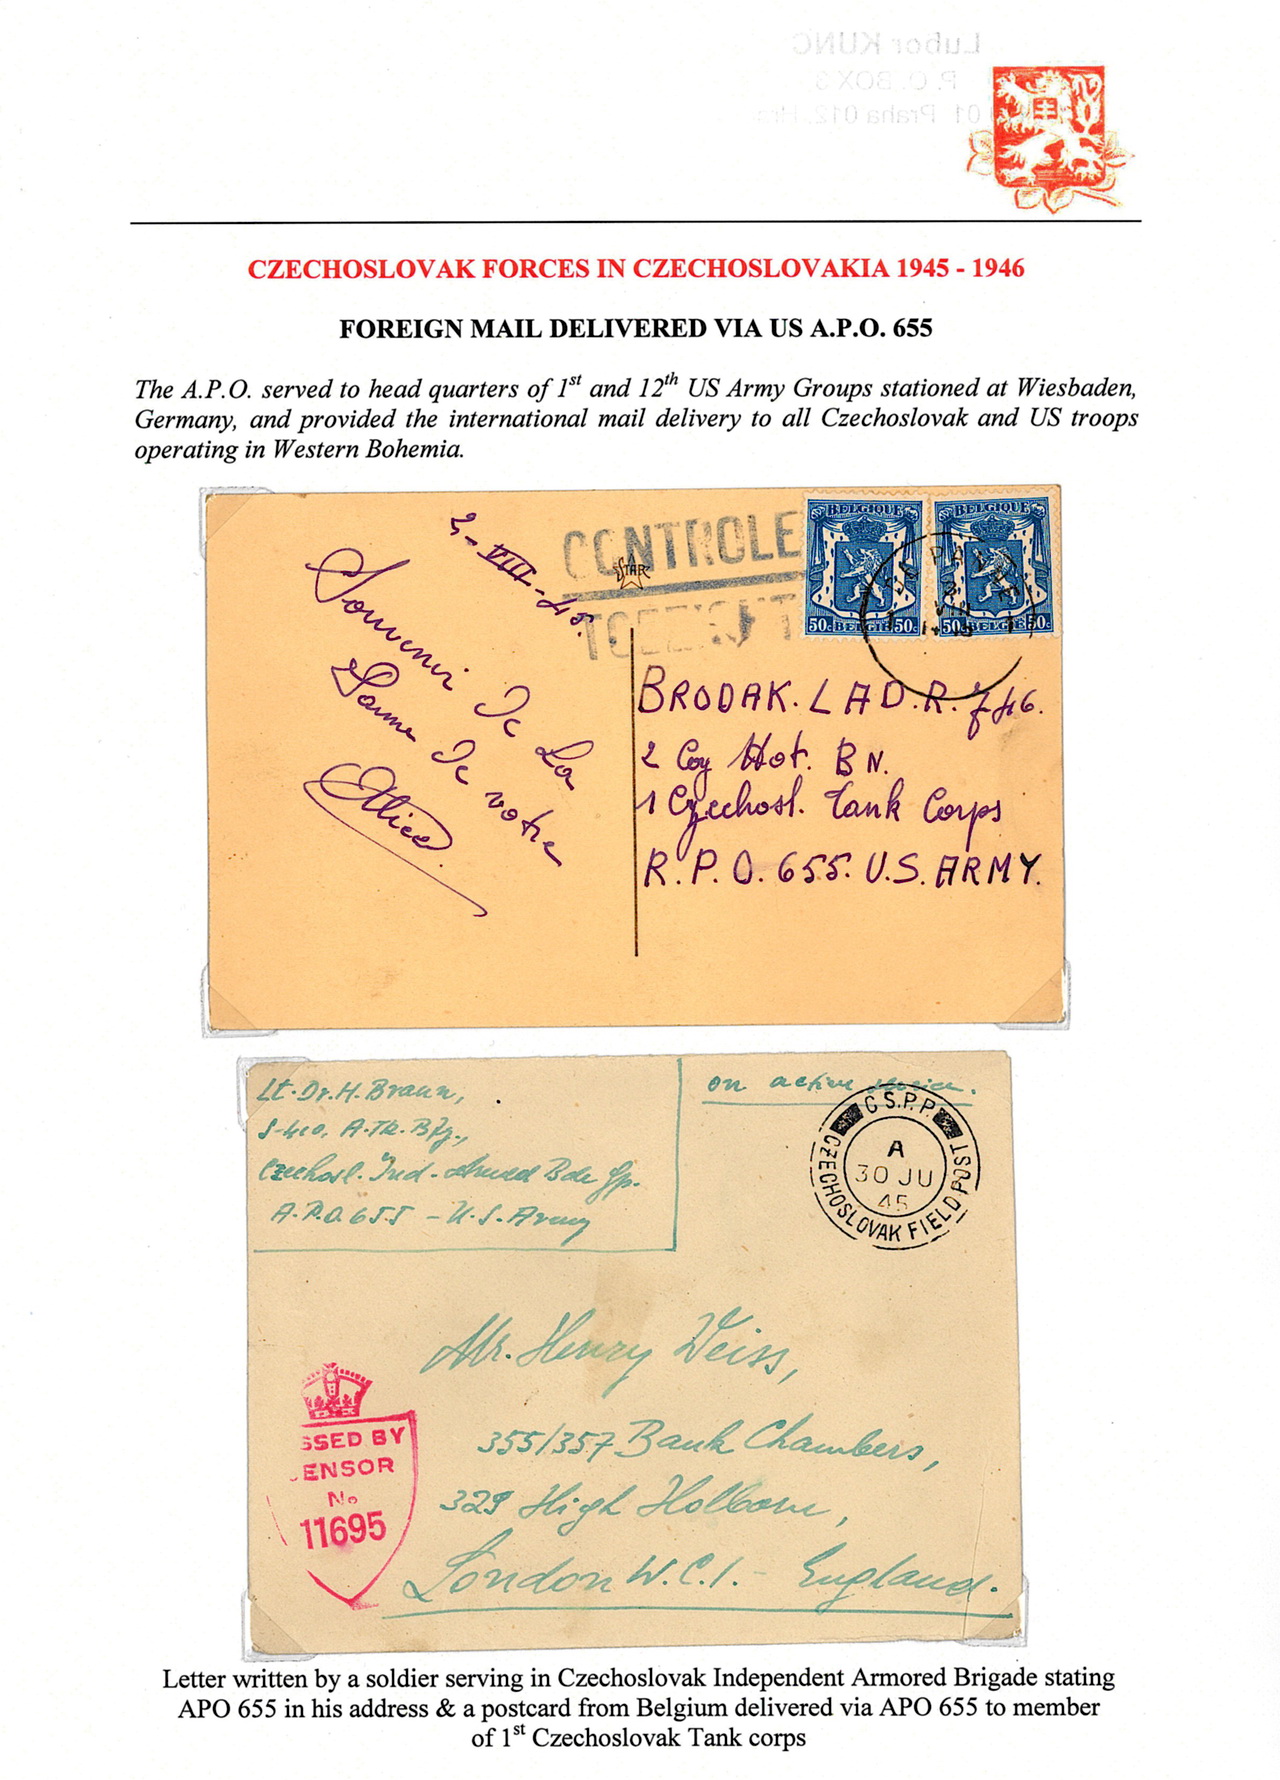 Lubor KUNC
P. O. BOX 3
01 Praha 012
CZECHOSLOVAK FORCES IN CZECHOSLOVAKIA 1945 - 1946
FOREIGN MAIL DELIVERED VIA US A.P.O. 655
The A.P.O. served to head quarters of 1st and 12th US Army Groups stationed at Wiesbaden,
Germany, and provided the international mail delivery to all Czechoslovak and US troops
operating in Western Bohemia.
2-VIII-45.
Souvenir de La
de votre
Alice.
CONTROLE
STAR
BELGIQUE
50c BELGIË 50c
BELGIQUE
50c BELGIË 50c
BRODAK. LAD. R. 746.
2 Coy Mot. BN.
1 Czechosl. Tank Corps
R.P.O. 655. U.S. ARMY.
Lt. Dr. H. Braun,
S-410, A-TK. Bty.,
Czechosl. Ind. Armed Bde Gp.
A.P.O. 655 - U.S. Army
on active service.
C S.P.P
A
30 JU
45
CZECHOSLOVAK FIELD POST
Mr. Henry Weiss,
355/357 Bank Chambers,
329 High Holborn,
London W.C.1. - England.
SSED BY
ENSOR
No
11695
Letter written by a soldier serving in Czechoslovak Independent Armored Brigade stating
APO 655 in his address & a postcard from Belgium delivered via APO 655 to member
of 1st Czechoslovak Tank corps